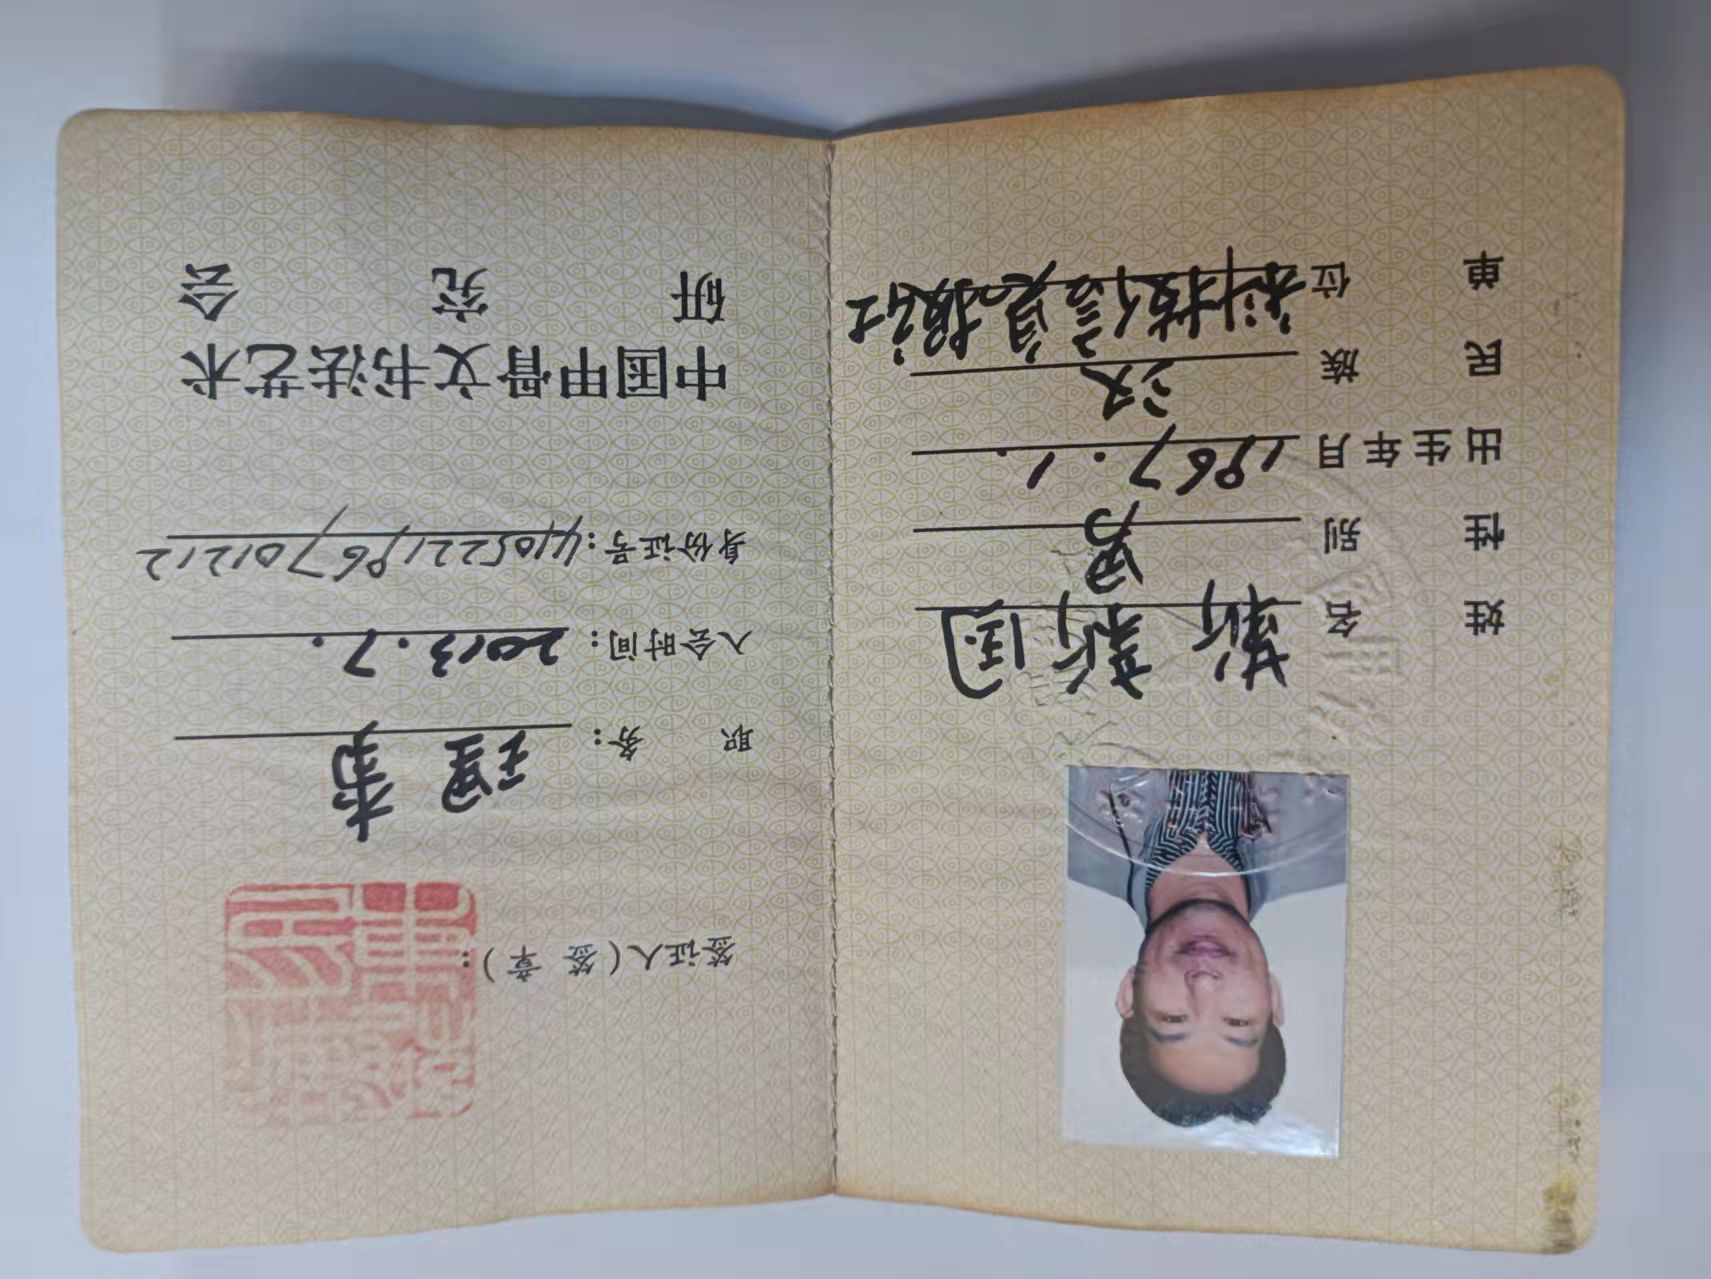 姓名 靳新国
性别 男
出生年月 1967.1.
民族 汉
单位 科技信息报社
职务：理事
入会时间：2013.7.
身份证号：410522196701212
中国甲骨文书法艺术
研究会
签证人（签章）：